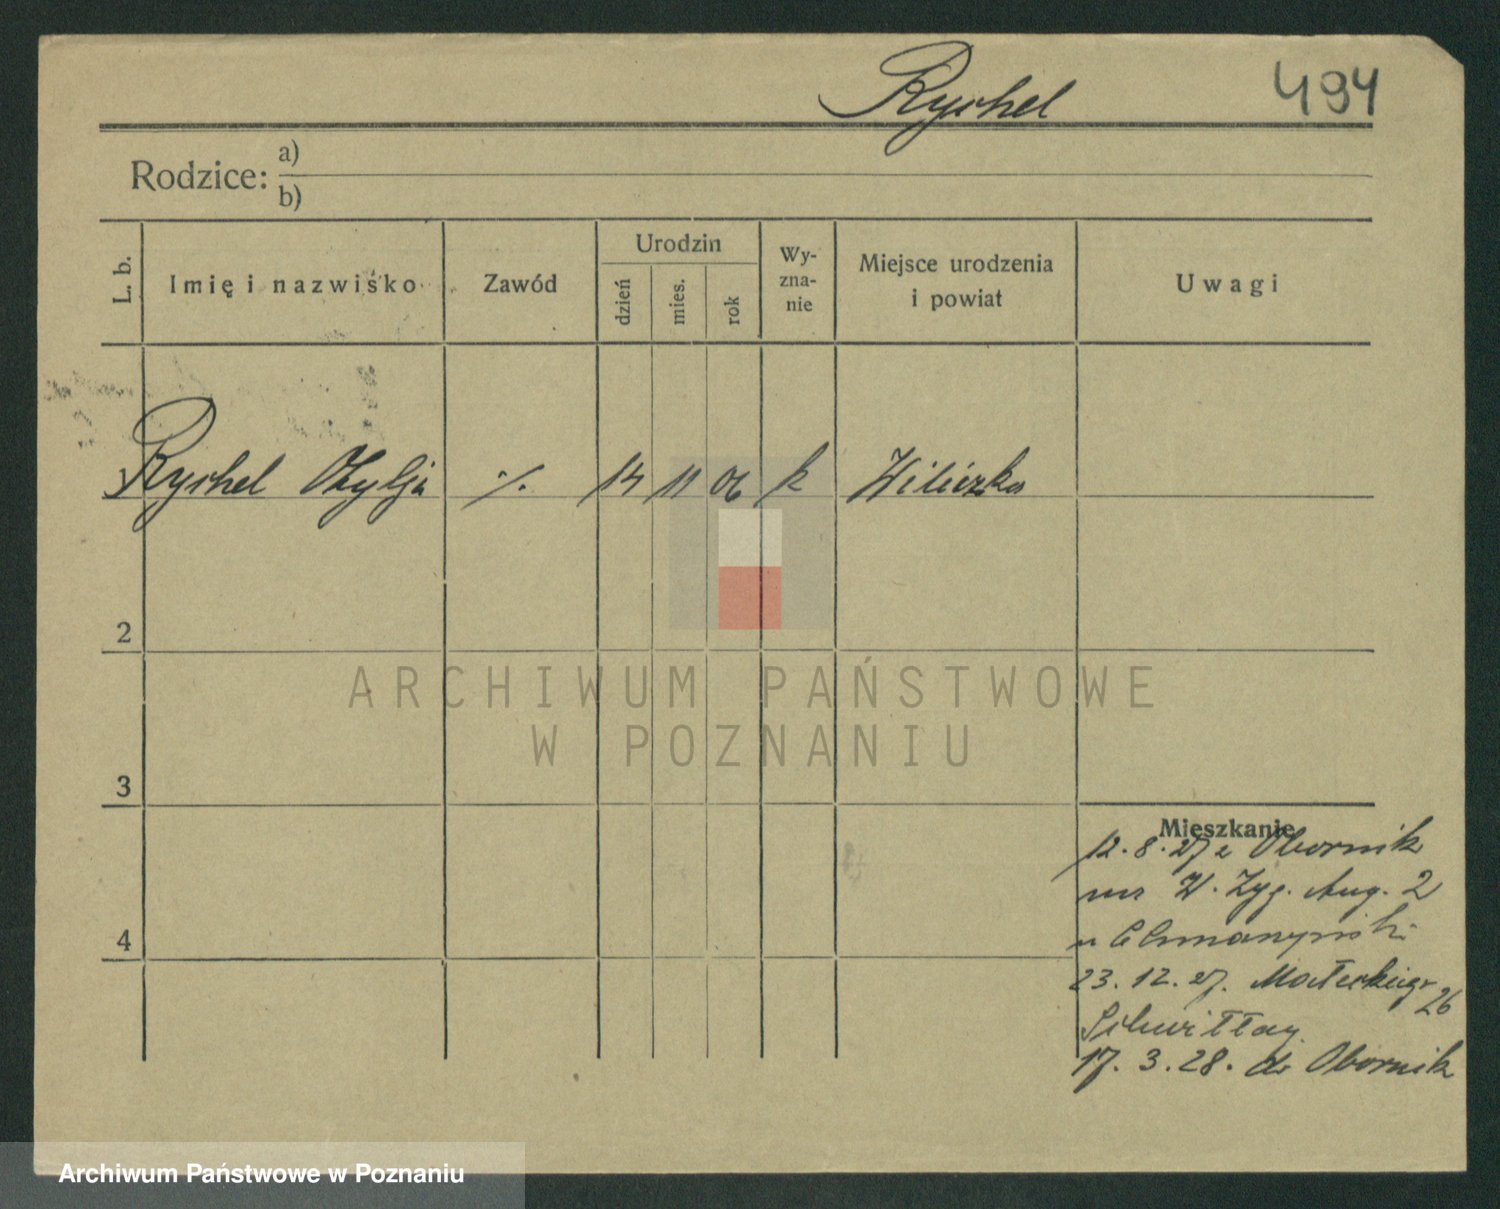 Rychel 494
Rodzice: a)
b)
L. b. Imię i nazwisko Zawód Urodzin dzień mies. rok Wy-zna-nie Miejsce urodzenia i powiat Uwagi
Rychel Otylja ·/. 14 11 06 k
2
3
4
Mieszkanie
12.8.27 z Obornik
na W. Zyg. Aug. 2
u
23.12.27. Małeckiego 26
17.3.28. do Obornik
ARCHIWUM PAŃSTWOWE
W POZNANIU
Archiwum Państwowe w Poznaniu